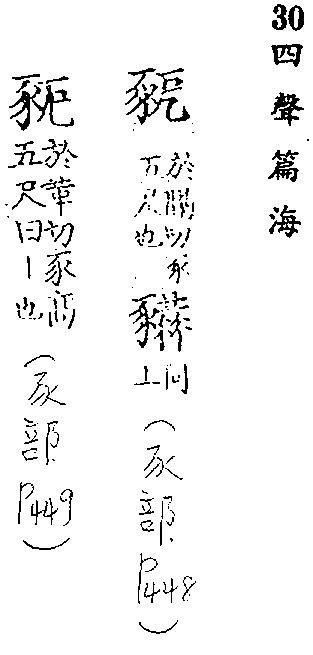 30四聲篇海
於切豕
五尺也
同
上
(豕部P448)
豟
於革切豕高
五尺曰丨也
(豕部P449)